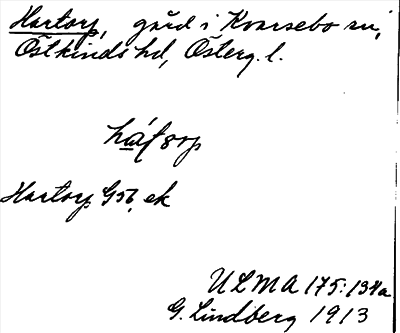 Hartorp, gård i Kvarsebo sn,
Östkinds hd, Österg. l.
Hartorp G56, ek
ULMA 175:134a
G. Lindberg 1913